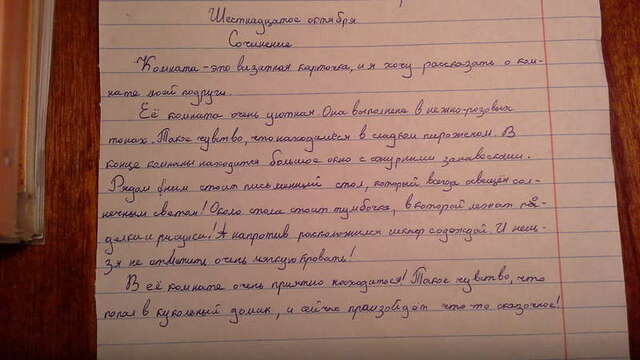 Шестнадцатое октября
Сочинение
Комната - это визитная карточка, и я хочу рассказать о ком-
нате моей подруги.
Её комната очень уютная Она выполнена в нежно-розовых
тонах. Такое чувство, что находишься в сладком пирожном. В
конце комнаты находится большое окно с ажурними занавесками.
Рядом с ним стоит письменний стол, который всегда освещён сол-
нечным светом! Около стола стоит тумбочка, в которой лежат по-
делки и рисунки! А напротив расположился шкаф с одеждой. И нель-
зя не отметить очень мягкую кровать!
В её комнате очень приятно находиться! Такое чувство, что
попал в кукольный домик, и сейчас произойдёт что-то сказочное!